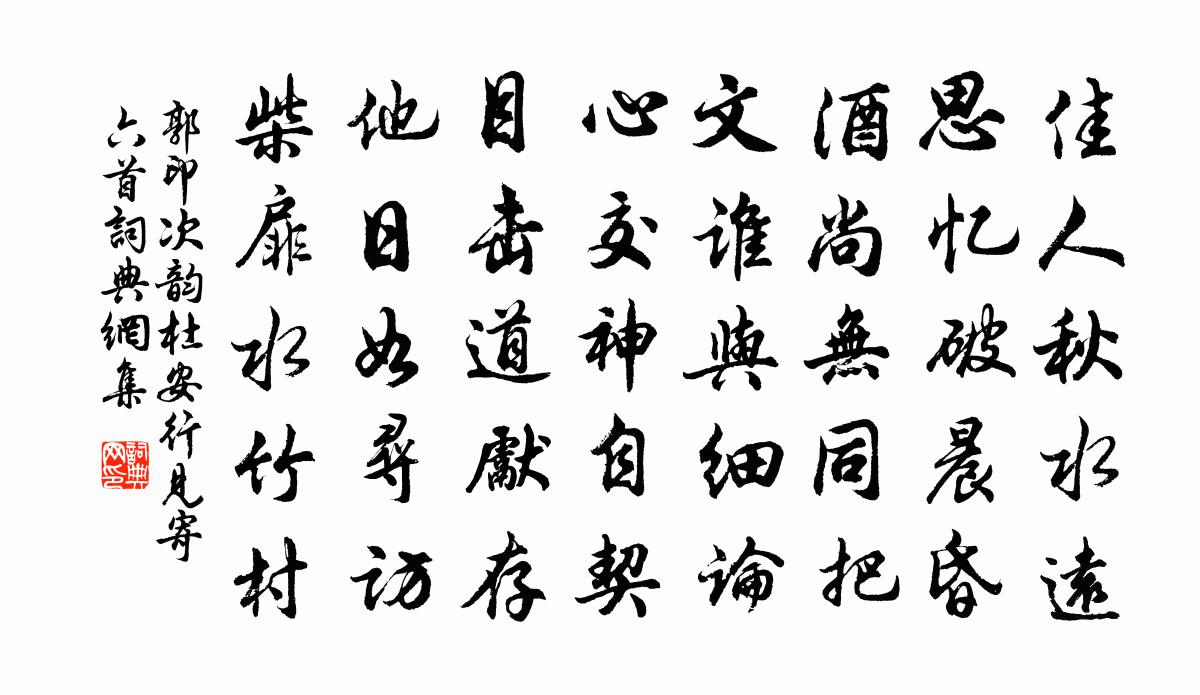 佳人秋水遠
思忆破晨昏
酒尚無同把
文誰與細論
心交神自契
目击道獻存
他日如尋訪
柴扉水竹村
郭印次韵杜安行見寄
六首詞典網集
詞典网印